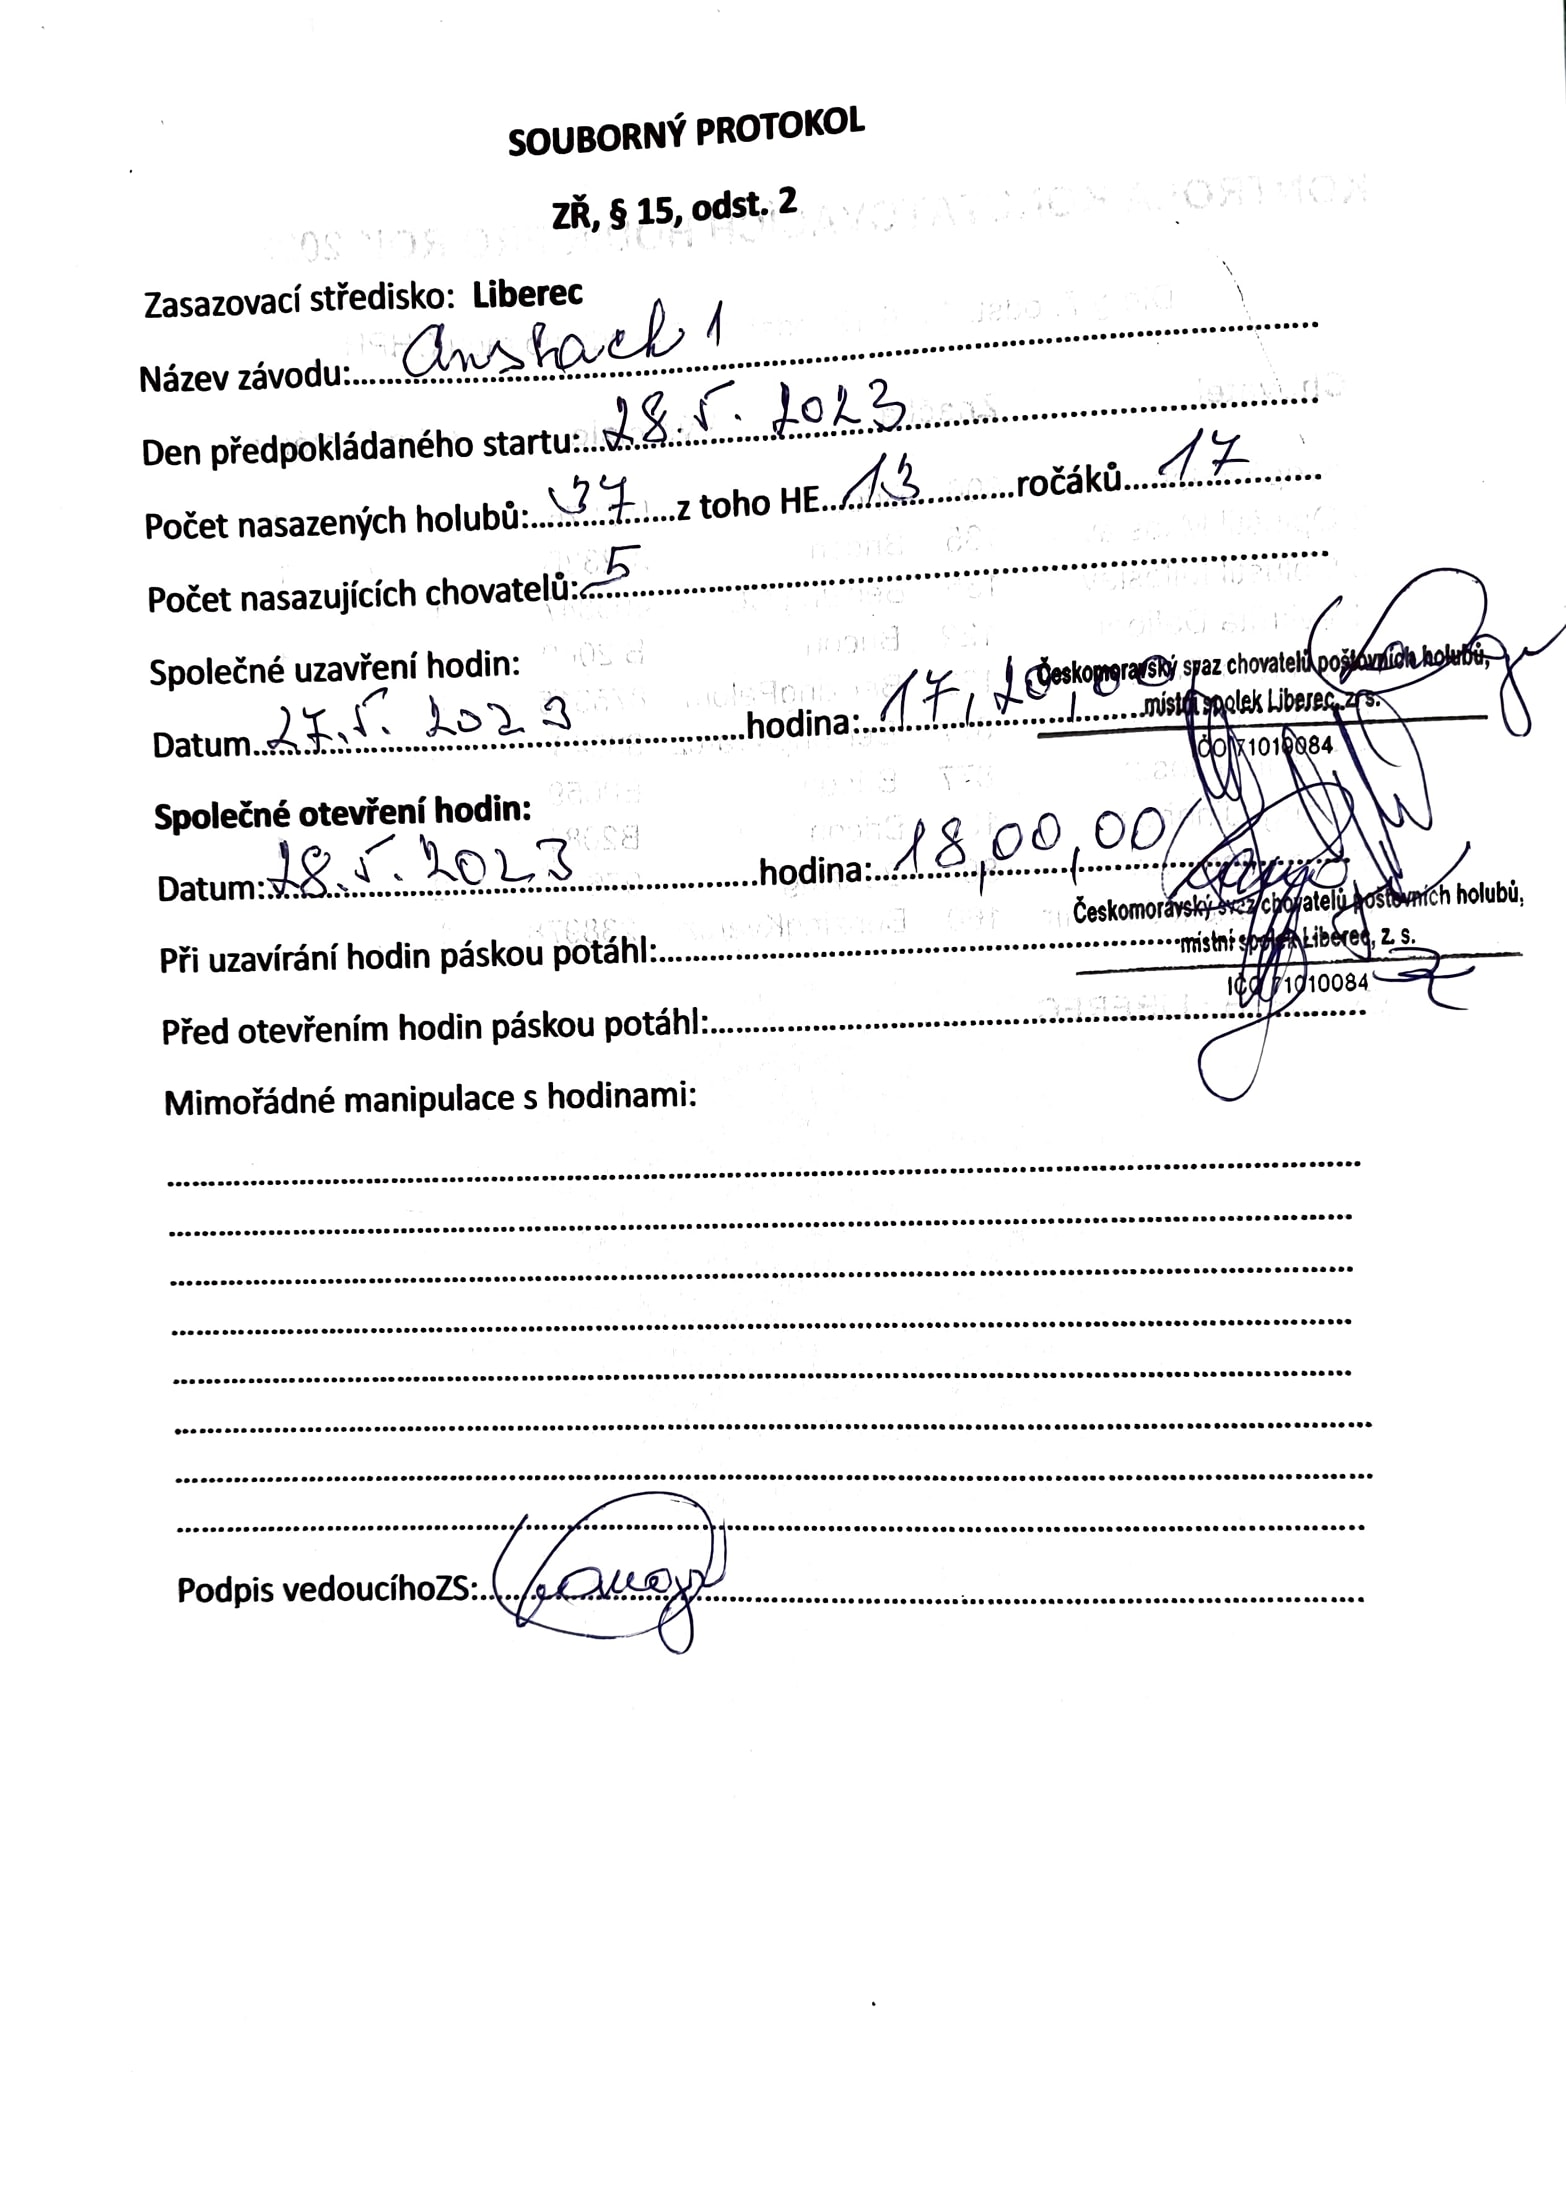 SOUBORNÝ PROTOKOL
ZŘ, § 15, odst. 2
Zasazovací středisko: Liberec
Název závodu: Ansbach 1
Den předpokládaného startu: 28.5. 2023
Počet nasazených holubů: 37 z toho HE 13 ročáků 17
Počet nasazujících chovatelů: 5
Společné uzavření hodin:
Českomoravský svaz chovatelů poštovních holubů,
místní spolek Liberec, z. s.
Datum 27.5. 2023 hodina: 17,20,00
IČO 71010084
Společné otevření hodin:
Datum: 28.5. 2023 hodina: 18,00,00
Českomoravský svaz chovatelů poštovních holubů,
Při uzavírání hodin páskou potáhl:
místní spolek Liberec, z. s.
IČO 71010084
Před otevřením hodin páskou potáhl:
Mimořádné manipulace s hodinami:
Podpis vedoucíhoZS: